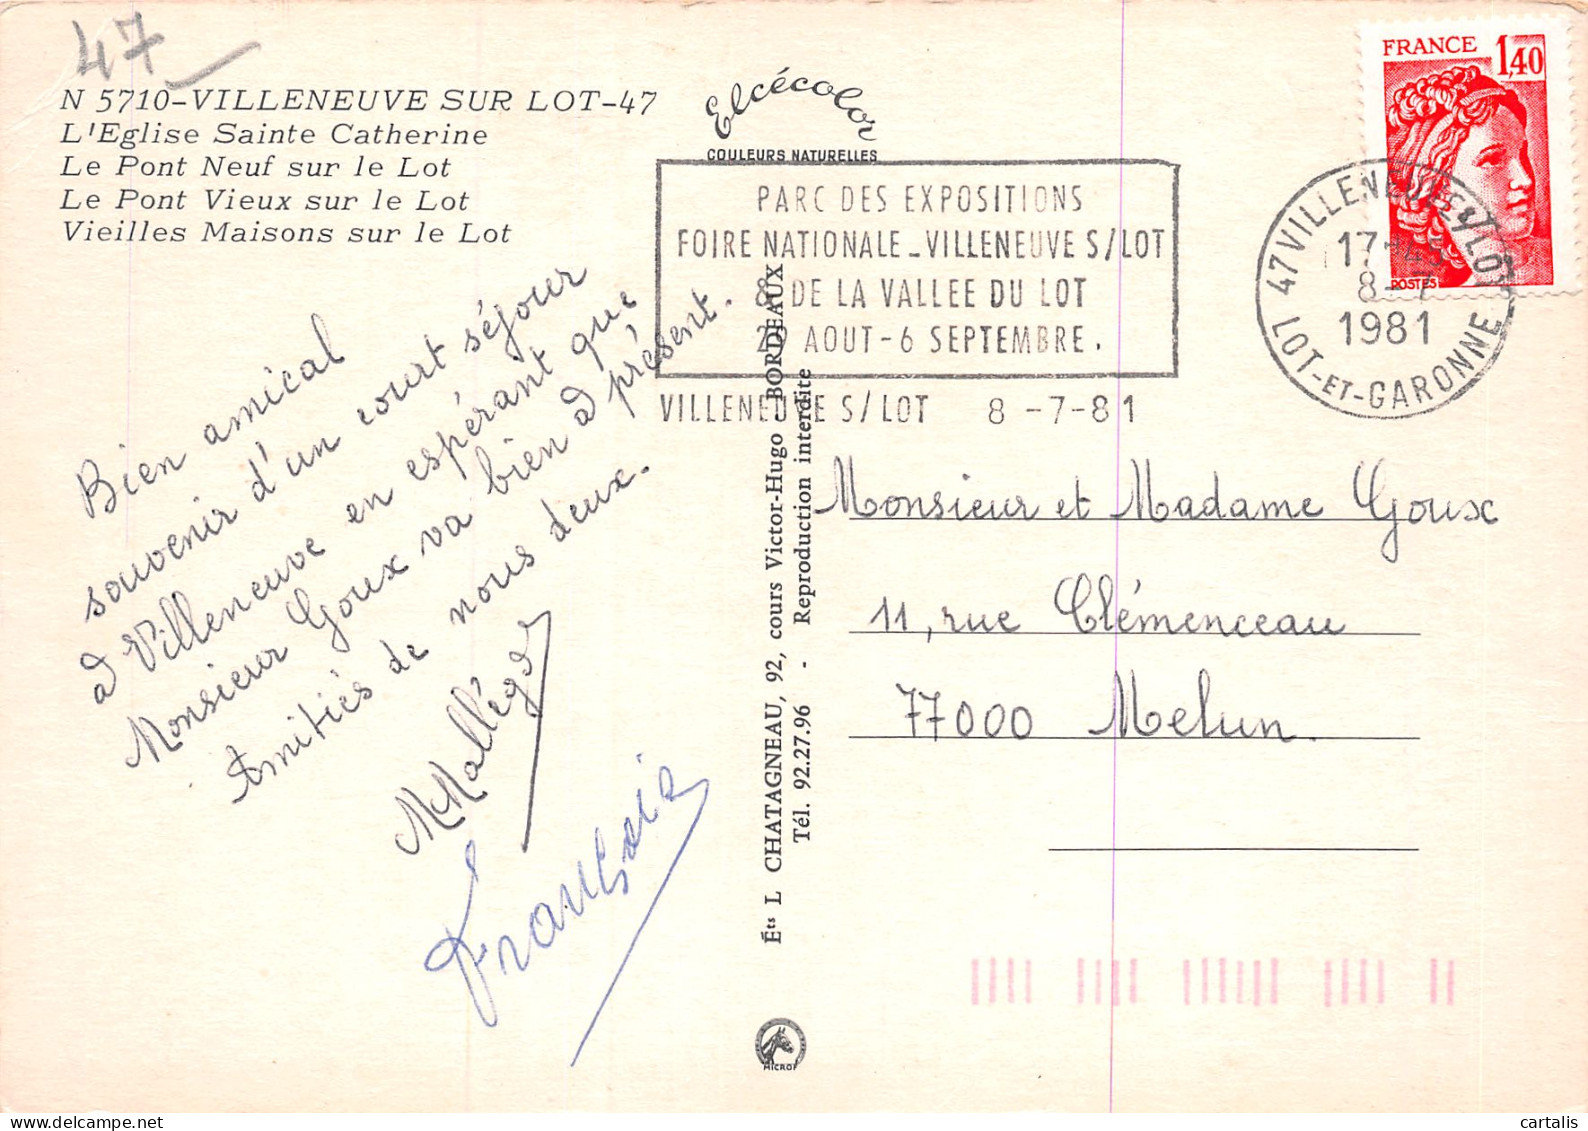 47
N 5710-VILLENEUVE SUR LOT-47
L'Eglise Sainte Catherine
Le Pont Neuf sur le Lot
Le Pont Vieux sur le Lot
Vieilles Maisons sur le Lot
Elcécolor
COULEURS NATURELLES
PARC DES EXPOSITIONS
FOIRE NATIONALE - VILLENEUVE S/LOT
& DE LA VALLEE DU LOT
29 AOUT - 6 SEPTEMBRE.
VILLENEUVE S/LOT 8-7-81
FRANCE
1,40
POSTES
47 VILLENEUVE S/ LOT
17H45
8-7
1981
LOT-ET-GARONNE
Bien amical
souvenir d'un court séjour
à Villeneuve en espérant que
Monsieur Goux va bien à présent.
Amitiés de nous deux.
Éts L CHATAGNEAU, 92, cours Victor-Hugo BORDEAUX
Tél. 92.27.96 - Reproduction interdite
Monsieur et Madame Goux
11, rue Clémenceau
77000 Melun.
MICROF
cartalis